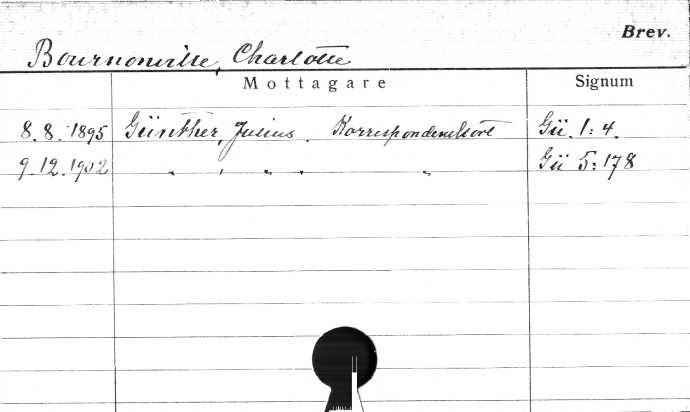 Brev.
Bournonville, Charlotte
Mottagare Signum
8.8.1895 Günther, Julius. Korrespondenskort Gü. 1:4.
9.12.1902 " , " . " Gü 5:178